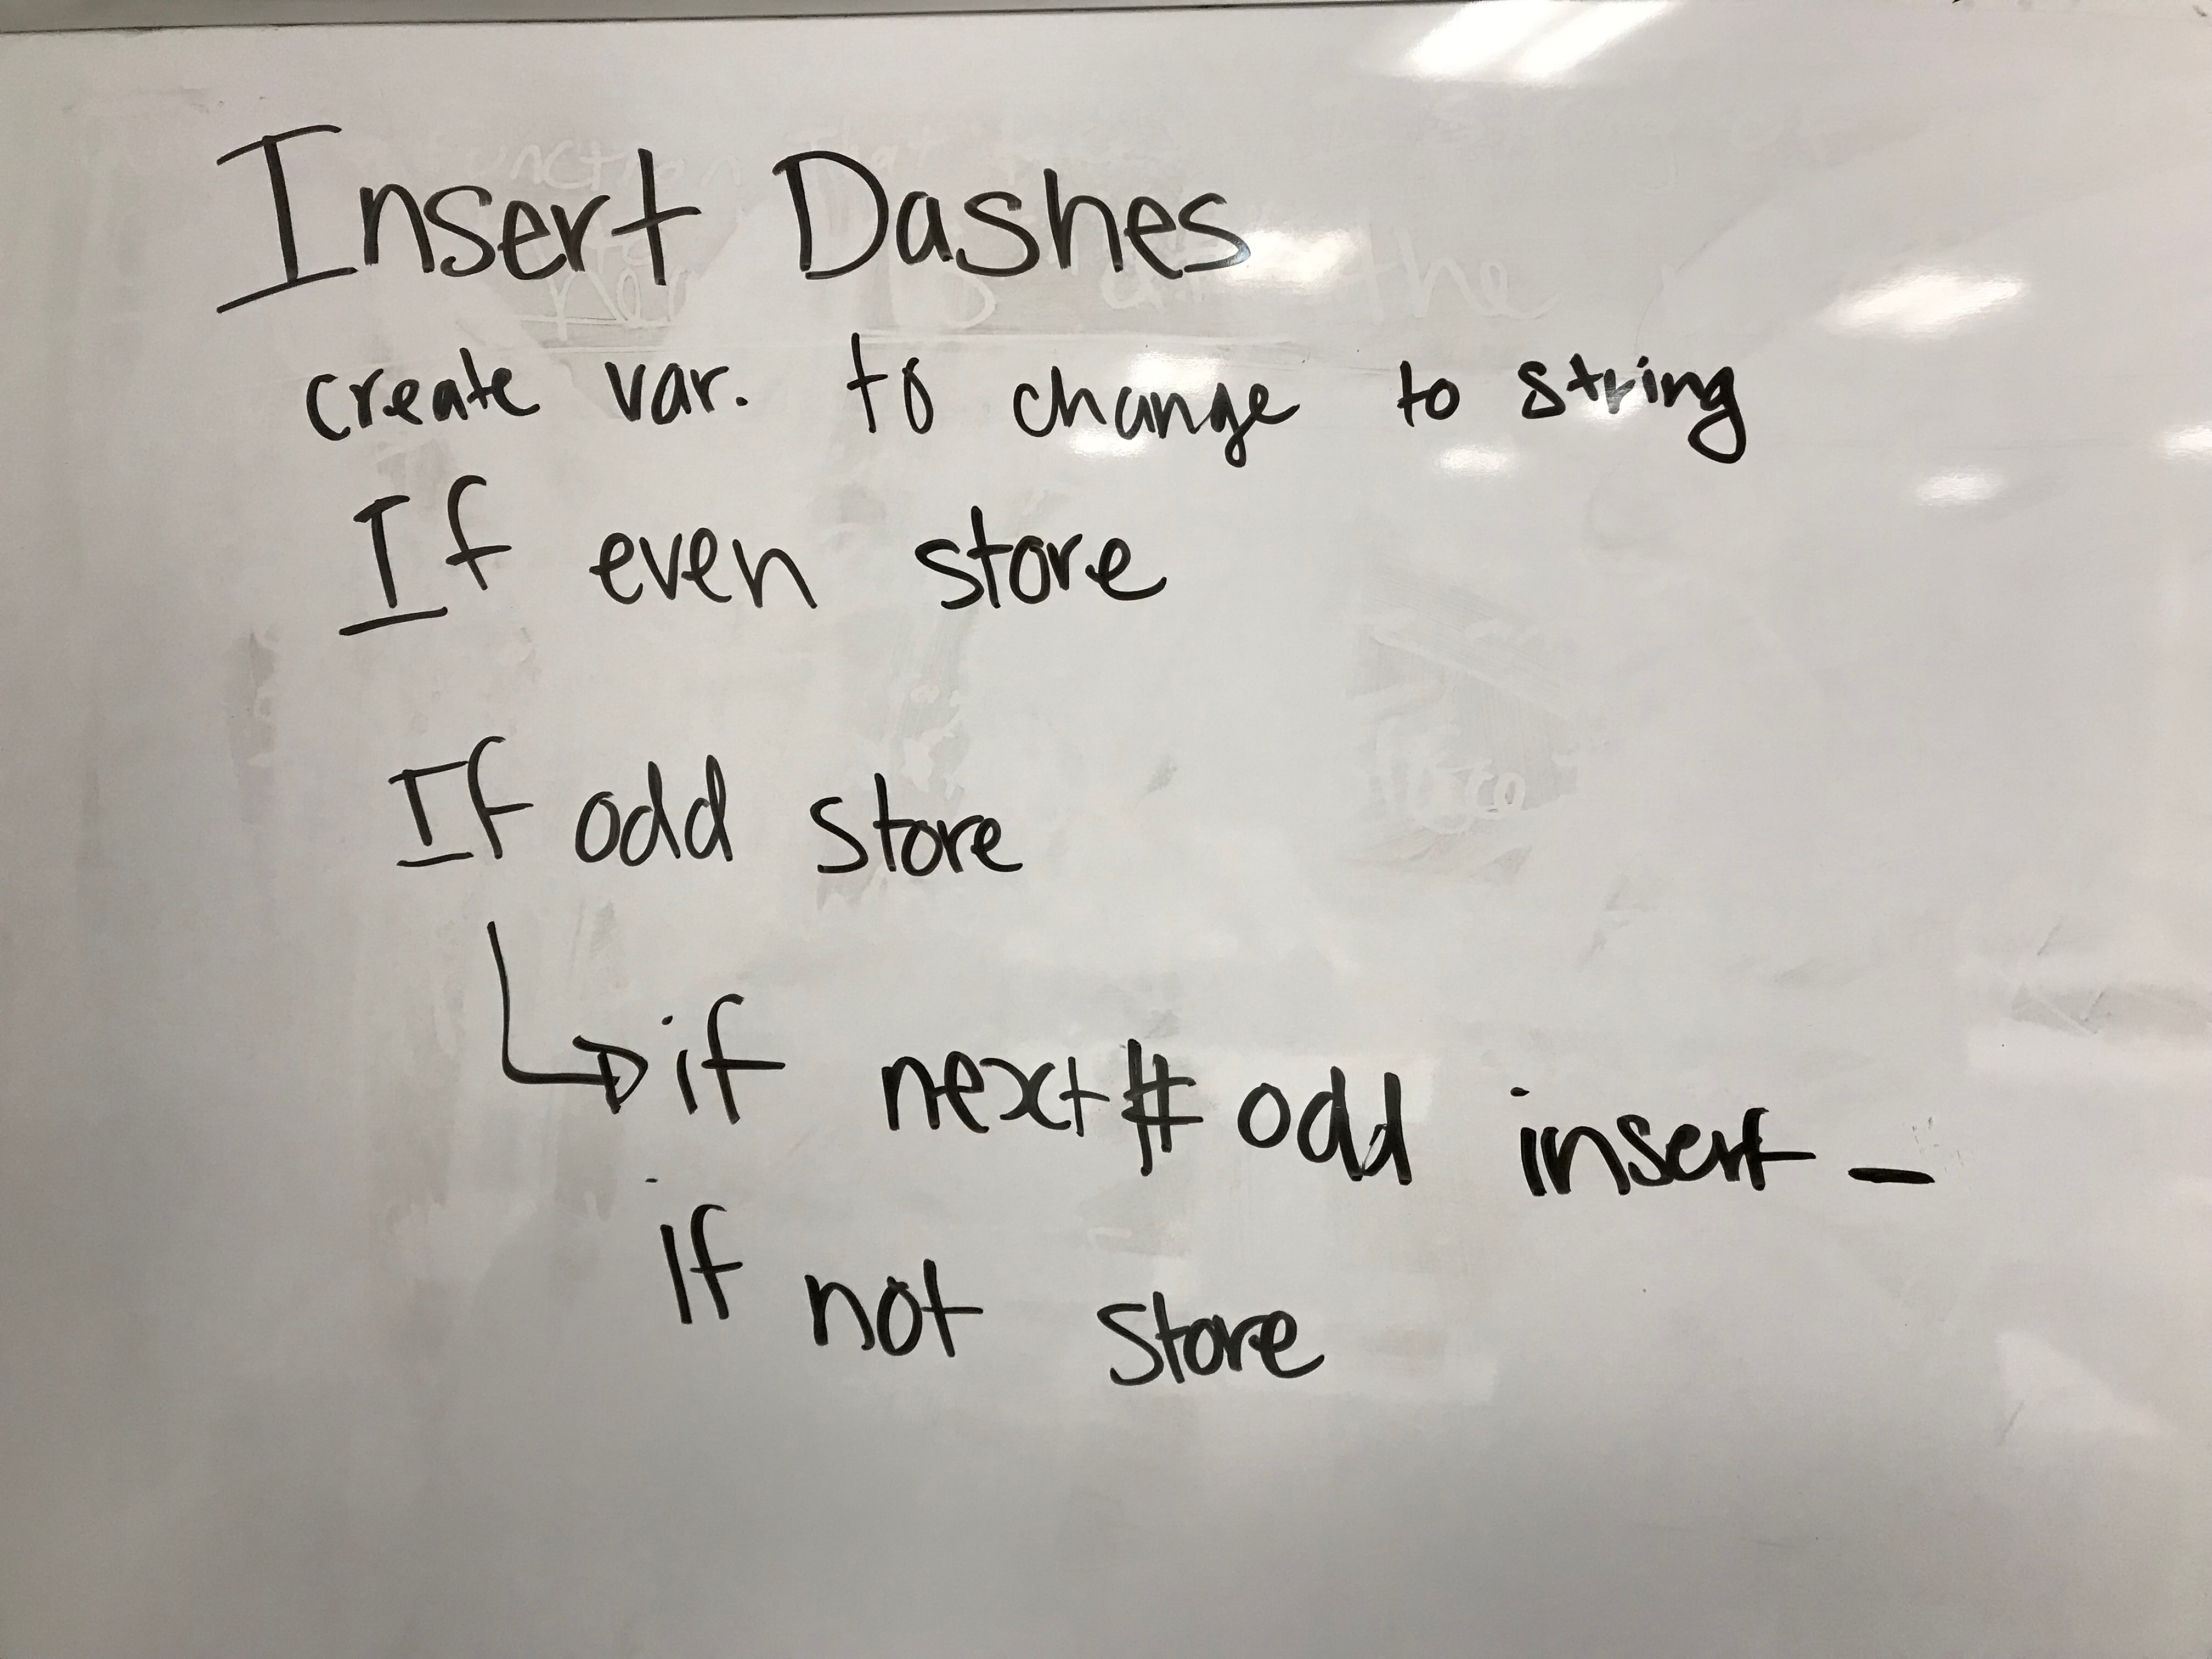 Insert Dashes
create var. to change to string
If even store
If odd store
if next # odd insert -
if not store